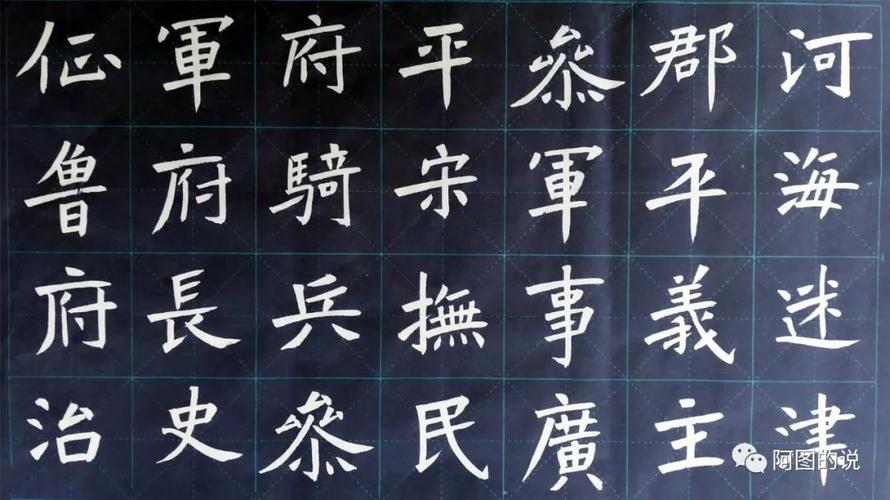 河海迷津
郡平義主
叅軍事廣
平宋撫民
府騎兵叅
軍府長史
佂魯府治
阿图的说